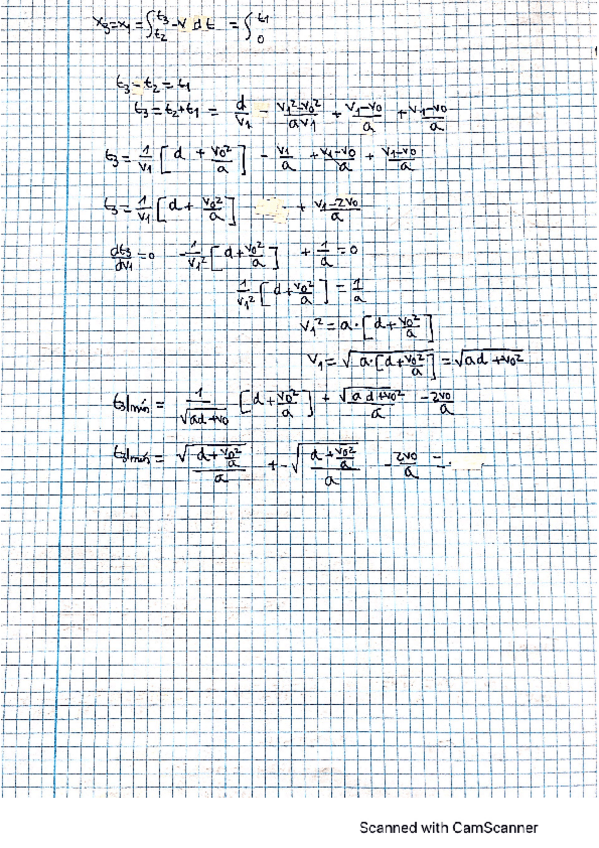 x₃=x₁ = ∫_{t₂}^{t₃} -v dt = ∫_0^{t₁}
t₃-t₂ = t₁
t₃ = t₂+t₁ = d/v₁ - (v₁²-v₀²)/(av₁) + (v₁-v₀)/a + (v₁-v₀)/a
t₃ = 1/v₁ [d + v₀²/a] - v₁/a + (v₁-v₀)/a + (v₁-v₀)/a
t₃ = 1/v₁ [d + v₀²/a] + (v₁-2v₀)/a
dt₃/dv₁ = 0 -1/v₁² [d + v₀²/a] + 1/a = 0
1/v₁² [d + v₀²/a] = 1/a
v₁² = a·[d + v₀²/a]
v₁ = √(a·[d + v₀²/a]) = √(ad + v₀²)
t₃|mín = 1/√(ad+v₀) [d + v₀²/a] + √(ad+v₀²)/a - 2v₀/a
t₃|mín = √(d + v₀²/a)/a + -√((d + v₀²/a)/a) - 2v₀/a =
Scanned with CamScanner